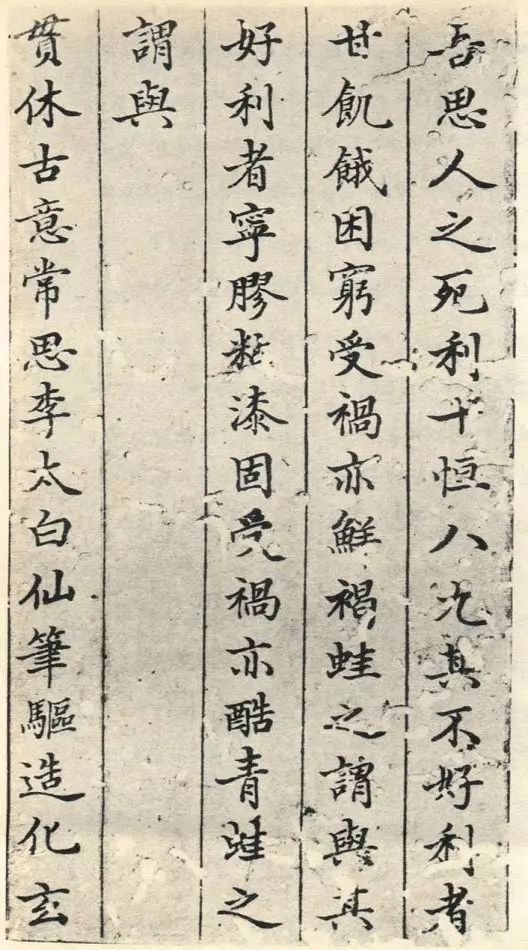 吾思人之死利十恒八九其不好利者
甘飢餓困窮受禍亦鮮褐蛙之謂與其
好利者寧膠粘漆固受禍亦酷青蛙之
謂與
貫休古意常思李太白仙筆驅造化玄